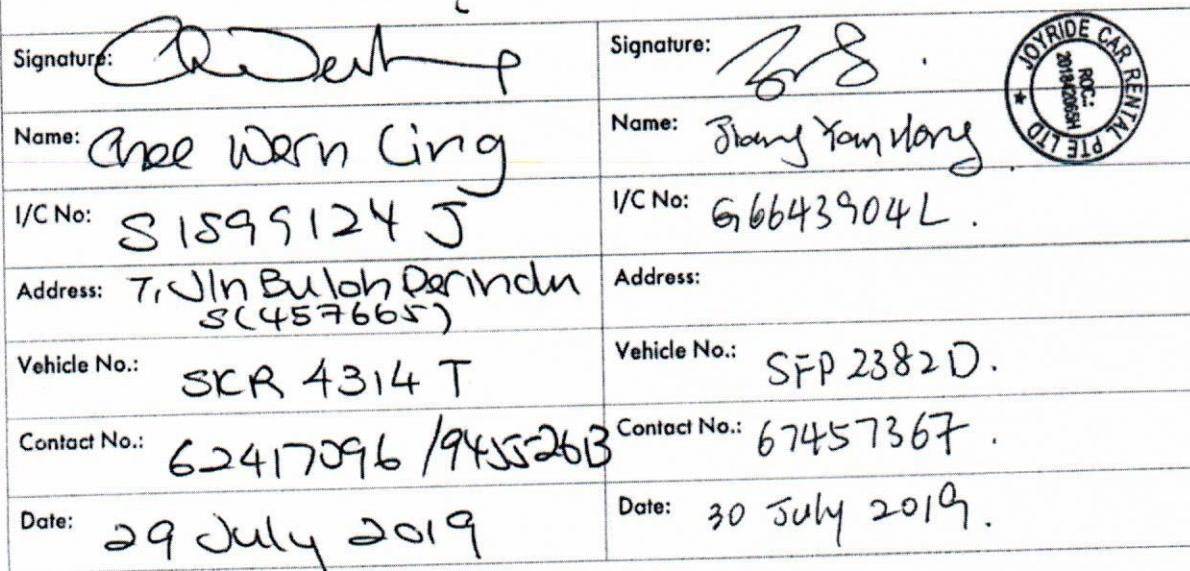 Signature:
Signature:
JOYRIDE CAR RENTAL PTE LTD
ROC.:
Name: Chee Wern Ling
Name: Jiang Yan Hong
I/C No: S1599124J
I/C No: G6643904L.
Address: 7, Jln Buloh Perindu
S(457665)
Address:
Vehicle No.: SKR 4314 T
Vehicle No.: SFP 2382 D.
Contact No.: 62417096 / 94552613
Contact No.: 67457367.
Date: 29 July 2019
Date: 30 July 2019.